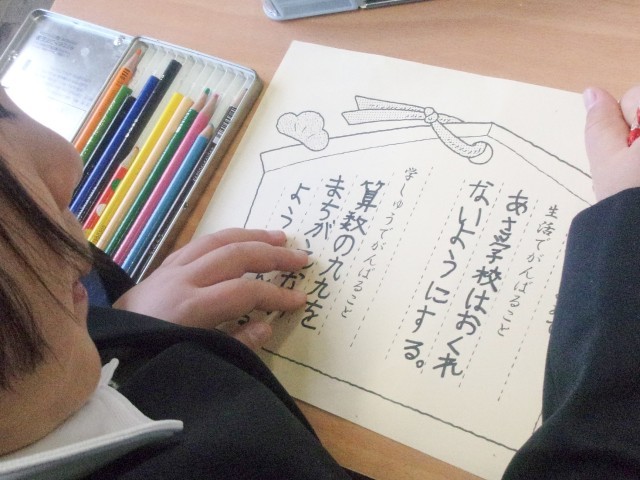 生活でがんばること
あさ学校はおくれ
ないようにする。
学しゅうでがんばること
算数の九九を
まちが
よう